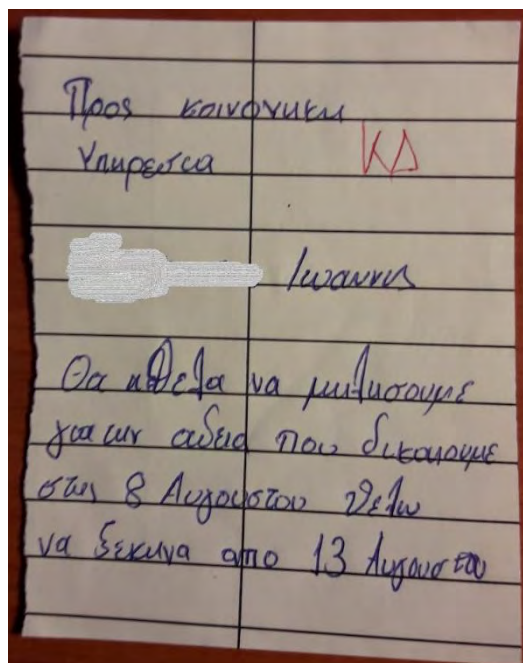 Προς κοινονικη
Υπηρεσια ΚΔ
Ιωαννης
Θα ηθελα να μιλησουμε
για την αδεια που δικαιουμε
στις 8 Αυγουστου θελω
να ξεκινα απο 13 Αυγουστου